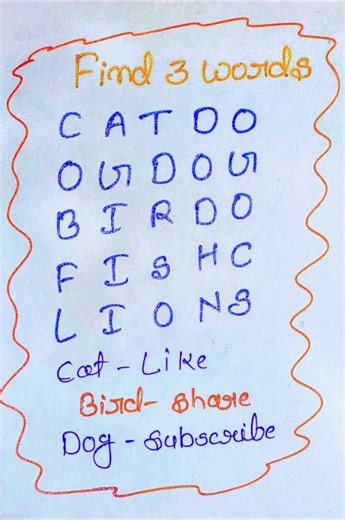 Find 3 words
C A T D O
O G D O G
B I R D O
F I S H C
L I O N S
Cat - Like
Bird - Share
Dog - Subscribe